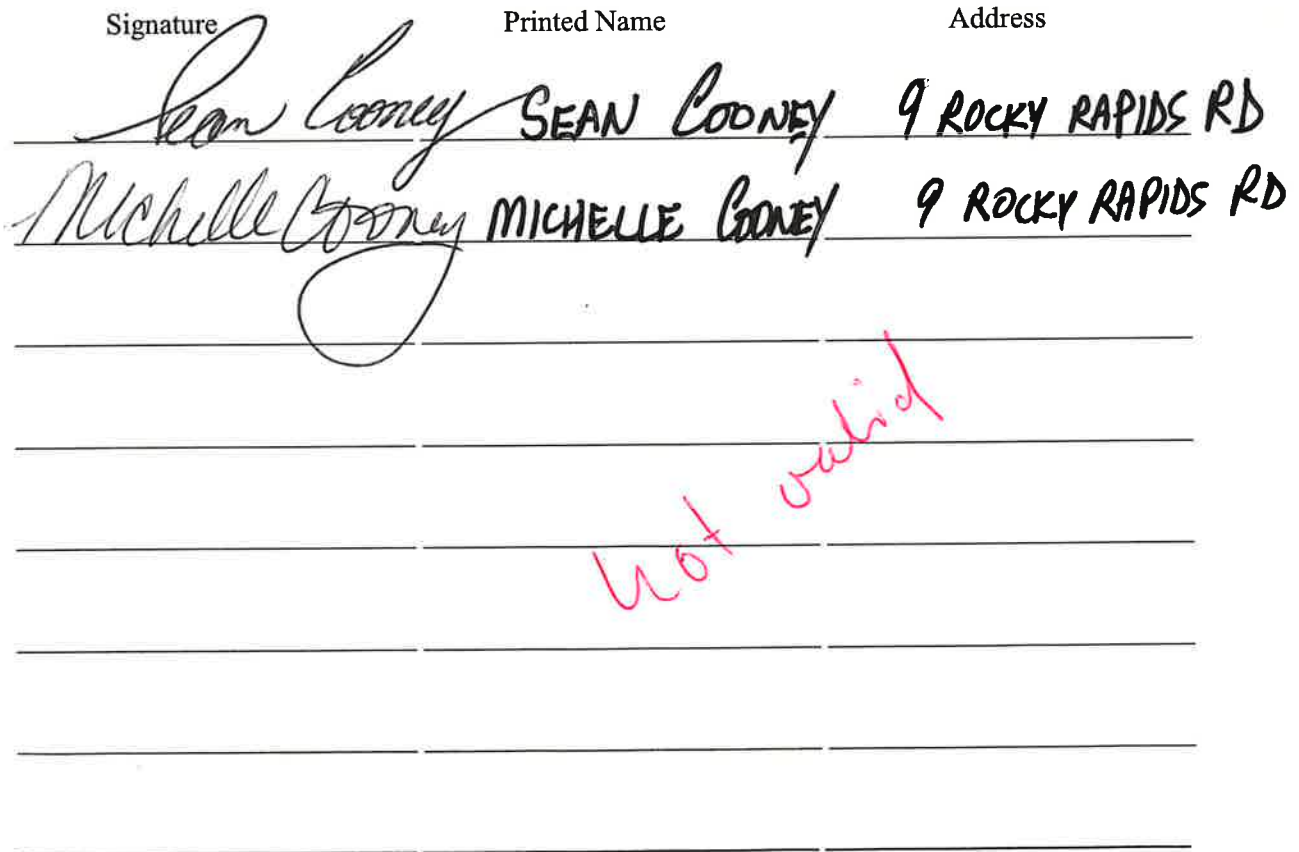 Signature Printed Name Address
Sean Cooney SEAN COONEY 9 ROCKY RAPIDS RD
Michelle Cooney MICHELLE COONEY 9 ROCKY RAPIDS RD
not valid